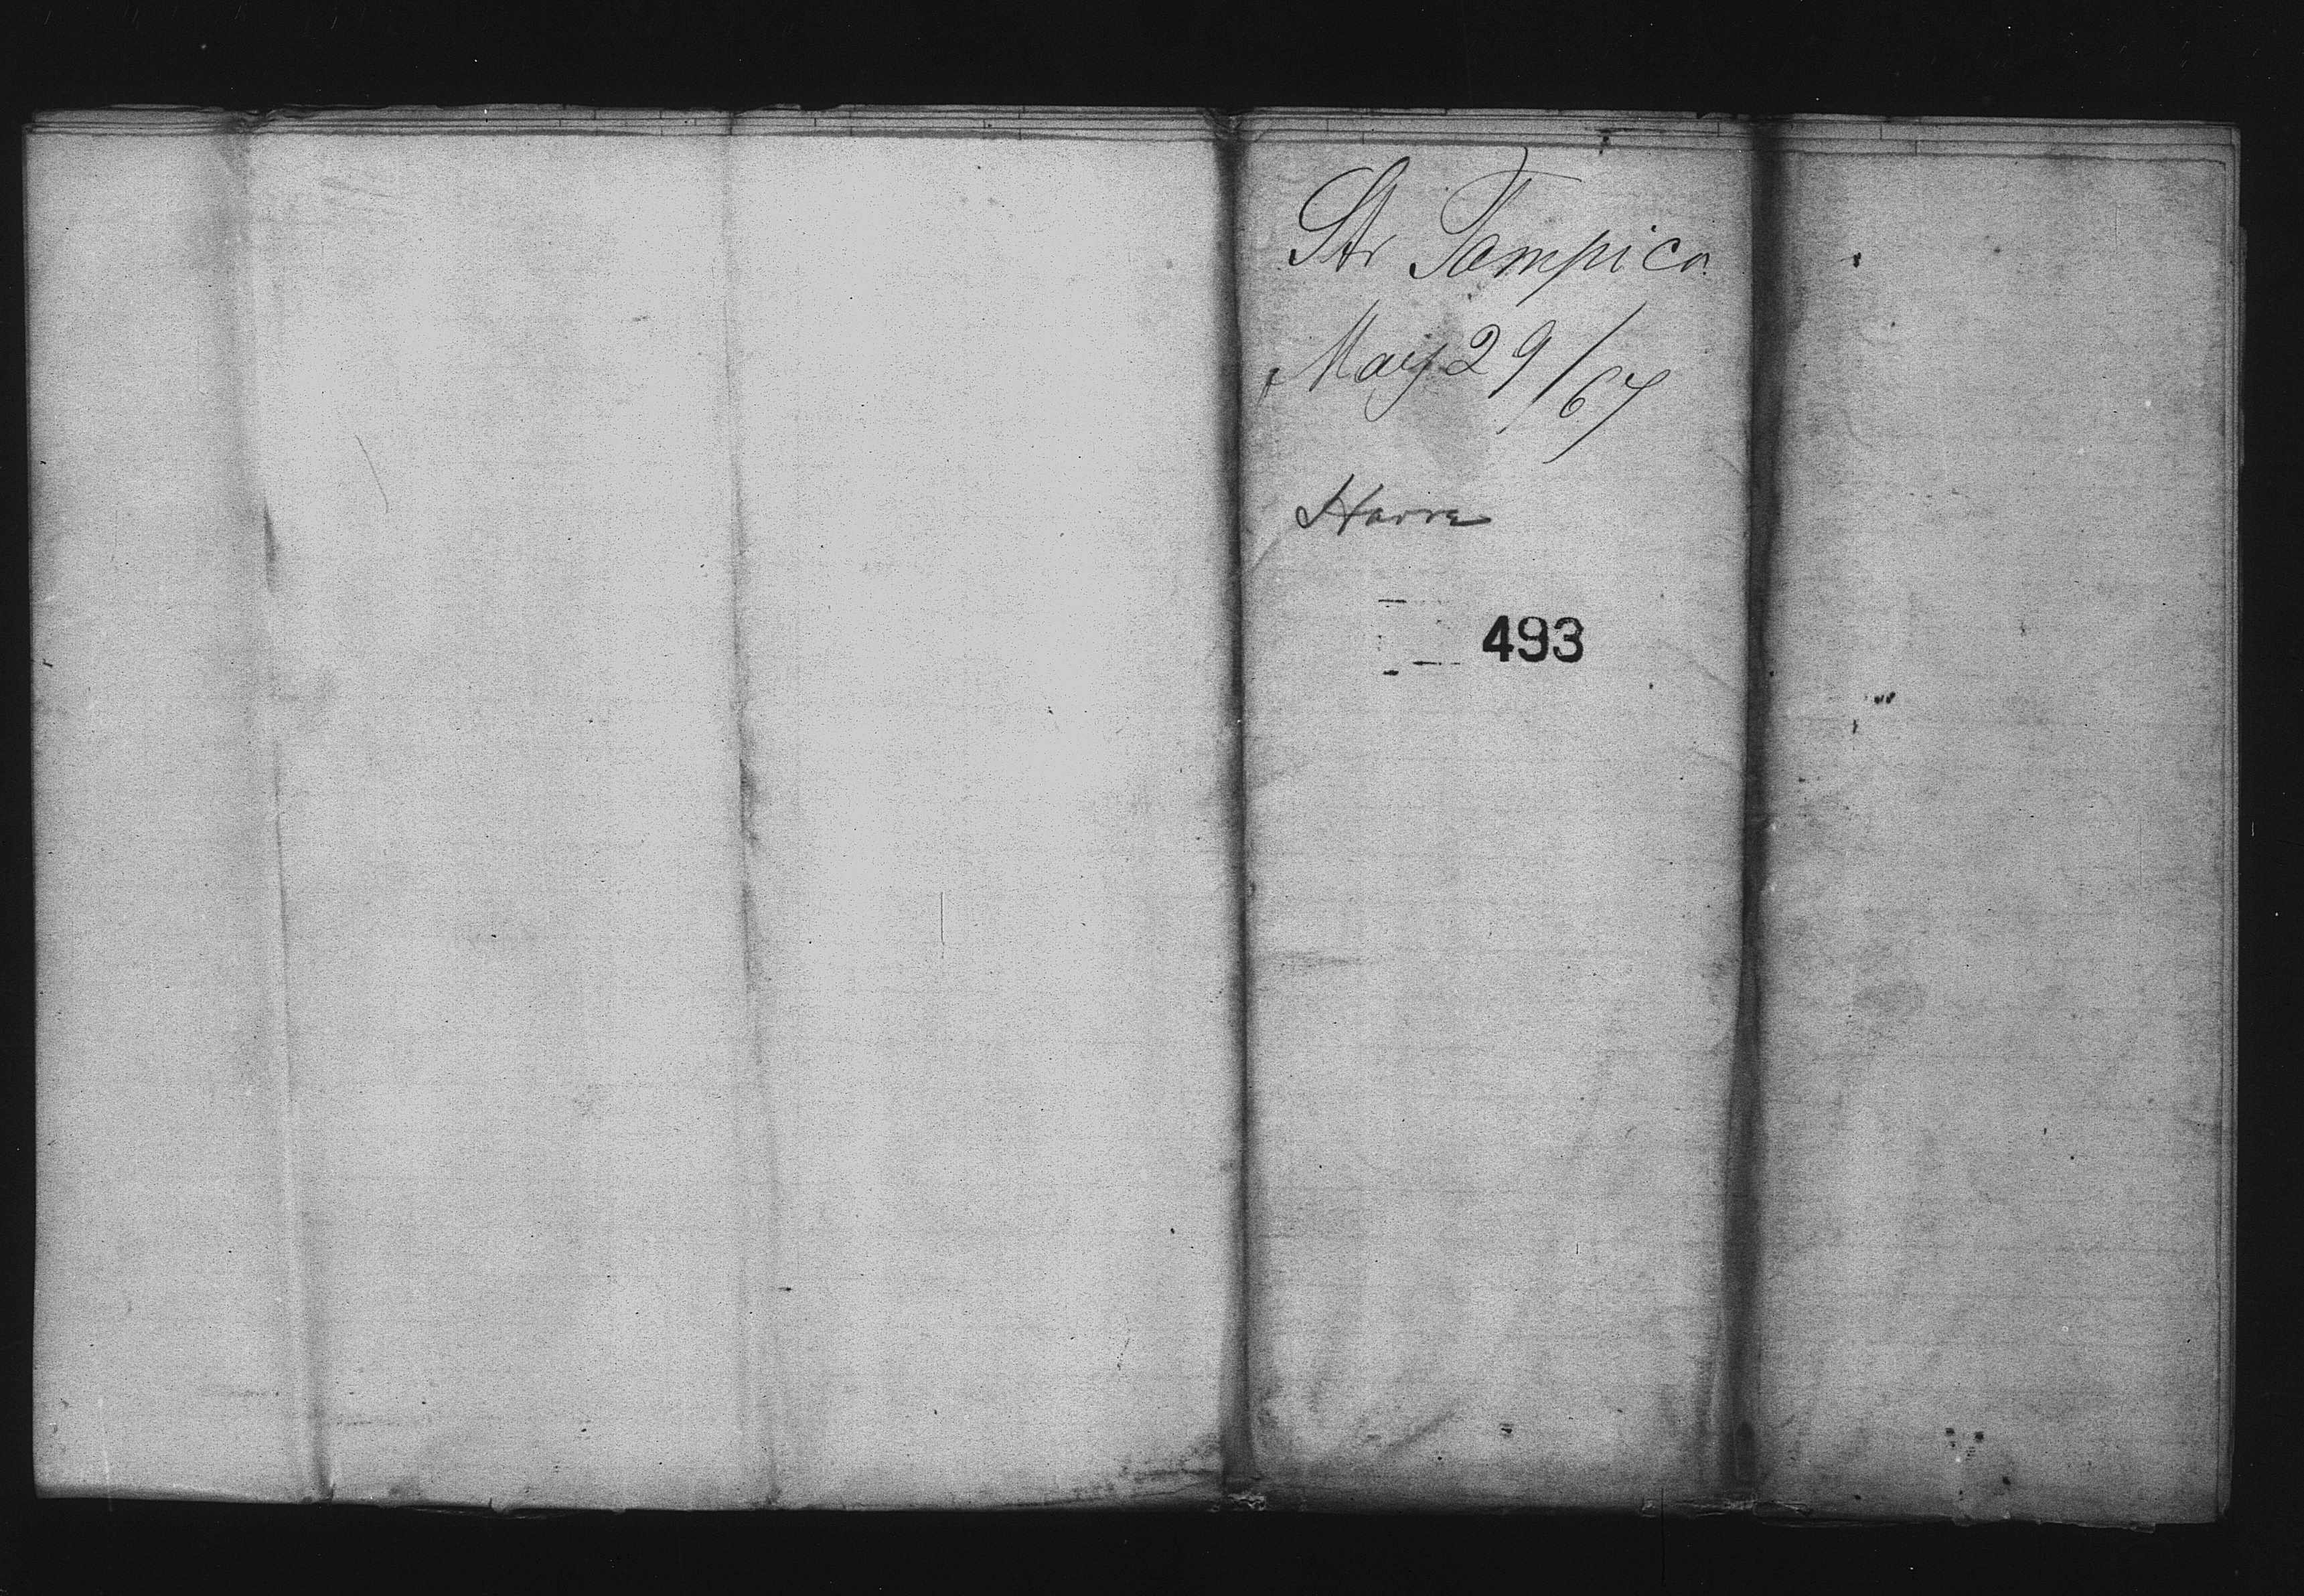 Str Tampico
May 29/67
Havre
493